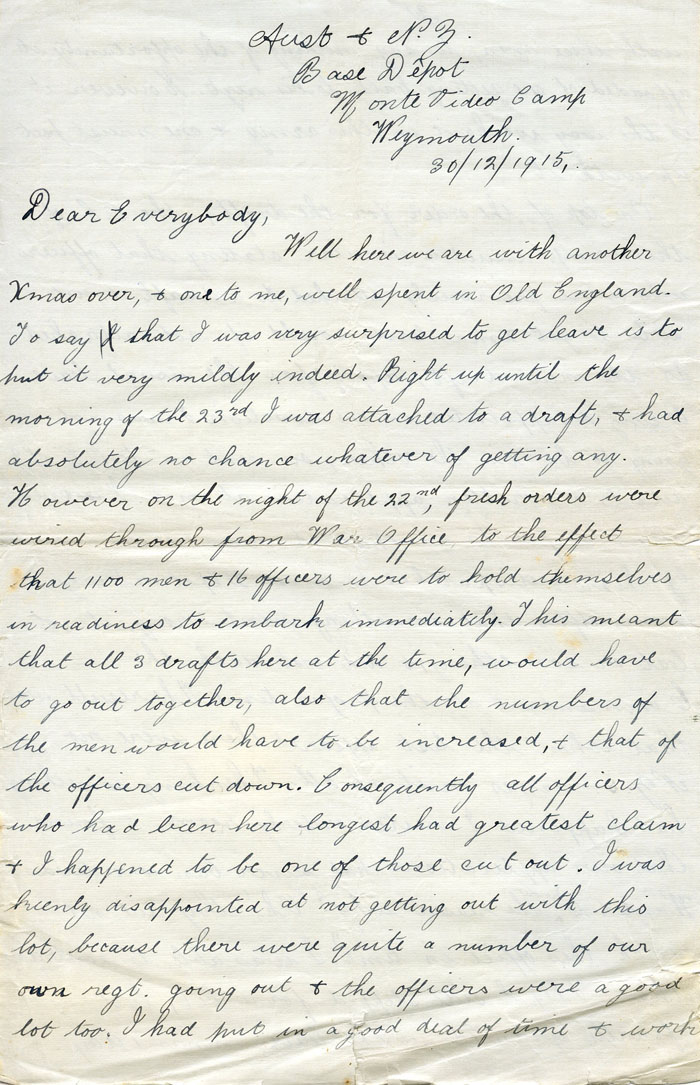 Aust & N.Z.
Base Depot
Monte Video Camp
Weymouth.
30/12/1915,.
Dear Everybody,
Well here we are with another
Xmas over, & one to me, well spent in Old England.
To say that I was very surprised to get leave is to
put it very mildly indeed. Right up until the
morning of the 23rd I was attached to a draft, & had
absolutely no chance whatever of getting any.
However on the night of the 22nd, fresh orders were
wired through from War Office to the effect
that 1100 men & 16 officers were to hold themselves
in readiness to embark immediately. This meant
that all 3 drafts here at the time, would have
to go out together, also that the numbers of
the men would have to be increased, & that of
the officers cut down. Consequently all officers
who had been here longest had greatest claim
& I happened to be one of those cut out. I was
keenly disappointed at not getting out with this
lot, because there were quite a number of our
own regt. going out & the officers were a good
lot too. I had put in a good deal of time & work